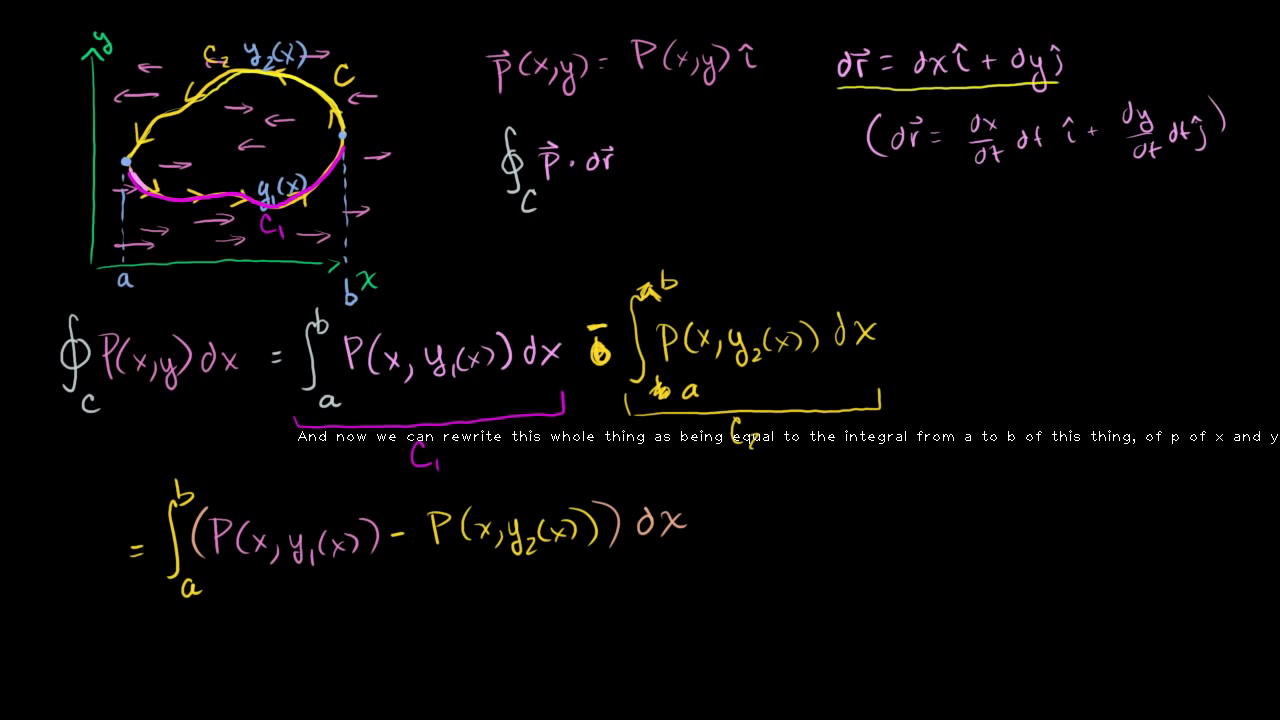 y
C₂ y₂(x)
C
P⃗(x,y) = P(x,y) î
dr⃗ = dx î + dy ĵ
(dr⃗ = dx/dt dt î + dy/dt dt ĵ)
∮_C P⃗ · dr⃗
y₁(x)
C₁
a
b
x
∮_C P(x,y) dx = ∫_a^b P(x, y₁(x)) dx - ∫_a^b P(x, y₂(x)) dx
And now we can rewrite this whole thing as being equal to the integral from a to b of this thing, of p of x and y
C₁
C₂
= ∫_a^b (P(x, y₁(x)) - P(x, y₂(x))) dx